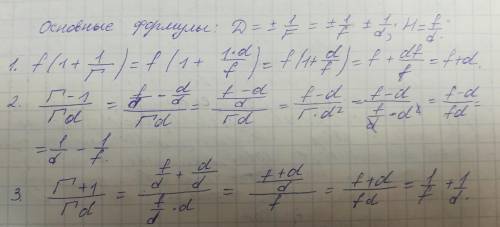 Основные формулы: D = ± 1/F = ± 1/f ± 1/d; H = f/d.
1. f(1 + 1/Г) = f(1 + 1·d/f) = f(1 + d/f) = f + df/f = f + d.
2. Г-1/Гd = f/d - d/d/Гd = f-d/d/Гd = f-d/Г·d² = f-d/f/d·d² = f-d/fd =
= 1/d - 1/f.
3. Г+1/Гd = f/d + d/d/f/d·d = f+d/d/f = f+d/fd = 1/f + 1/d.